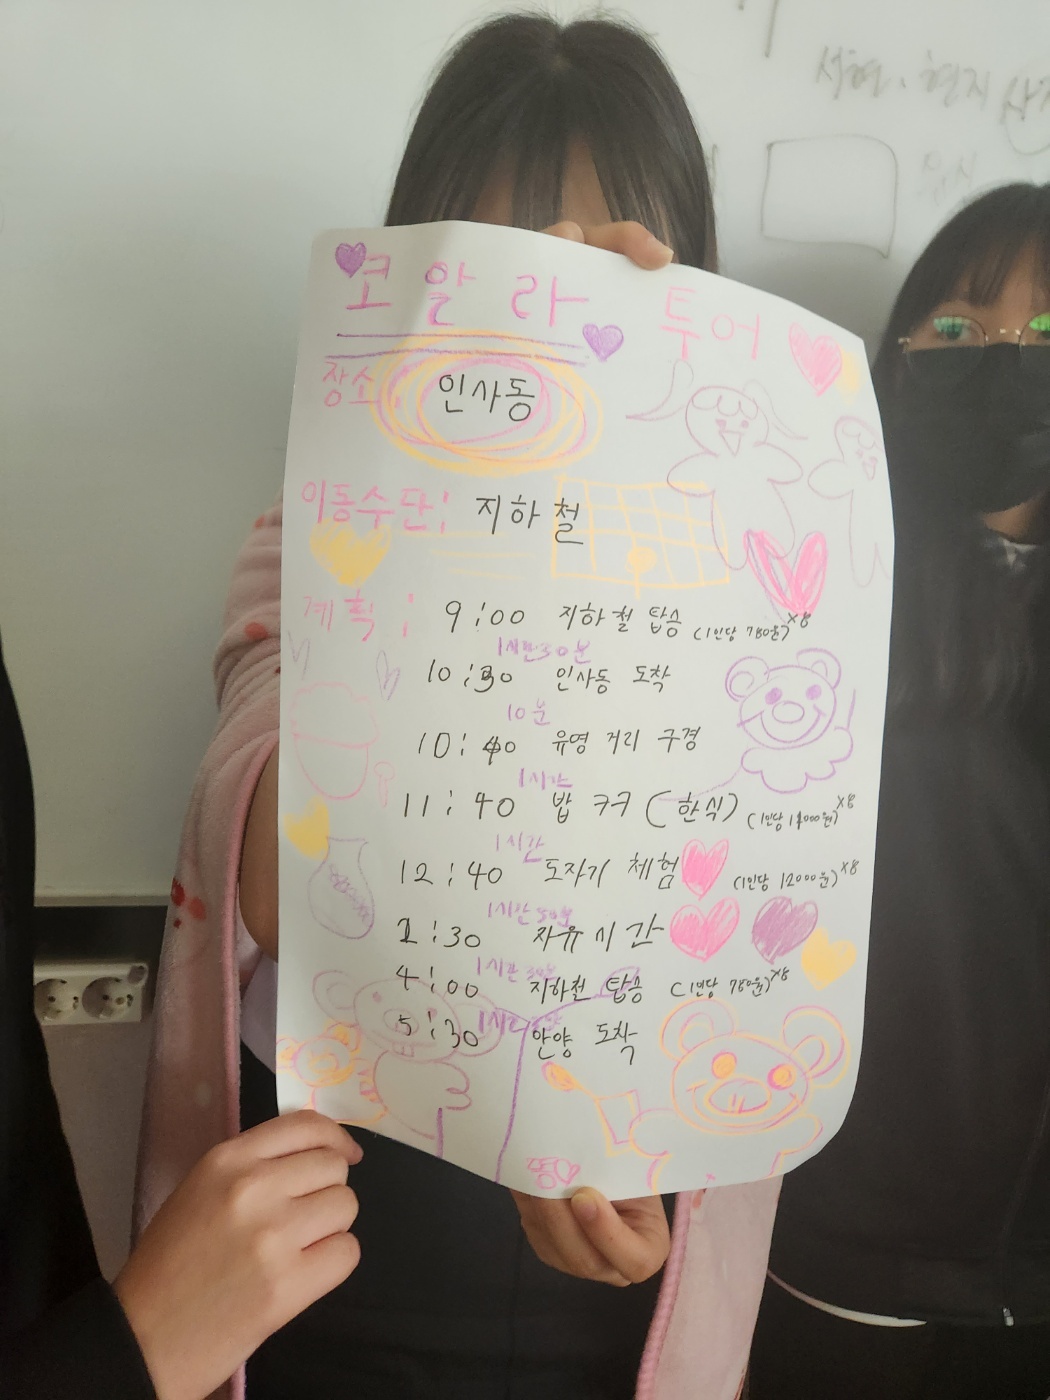 서현, 현지
코알라 투어
장소: 인사동
이동수단: 지하철
계획: 9:00 지하철 탑승 (1인당 780원)×8
1시간30분
10:30 인사동 도착
10분
10:40 유영 거리 구경
1시간
11:40 밥 ㅋㅋ (한식) (1인당 14000원)×8
1시간
12:40 도자기 체험 (1인당 12000원)×8
1시간 50분
2:30 자유시간
1시간 30분
4:00 지하철 탑승 (1인당 780원)×8
5:30 안양 도착